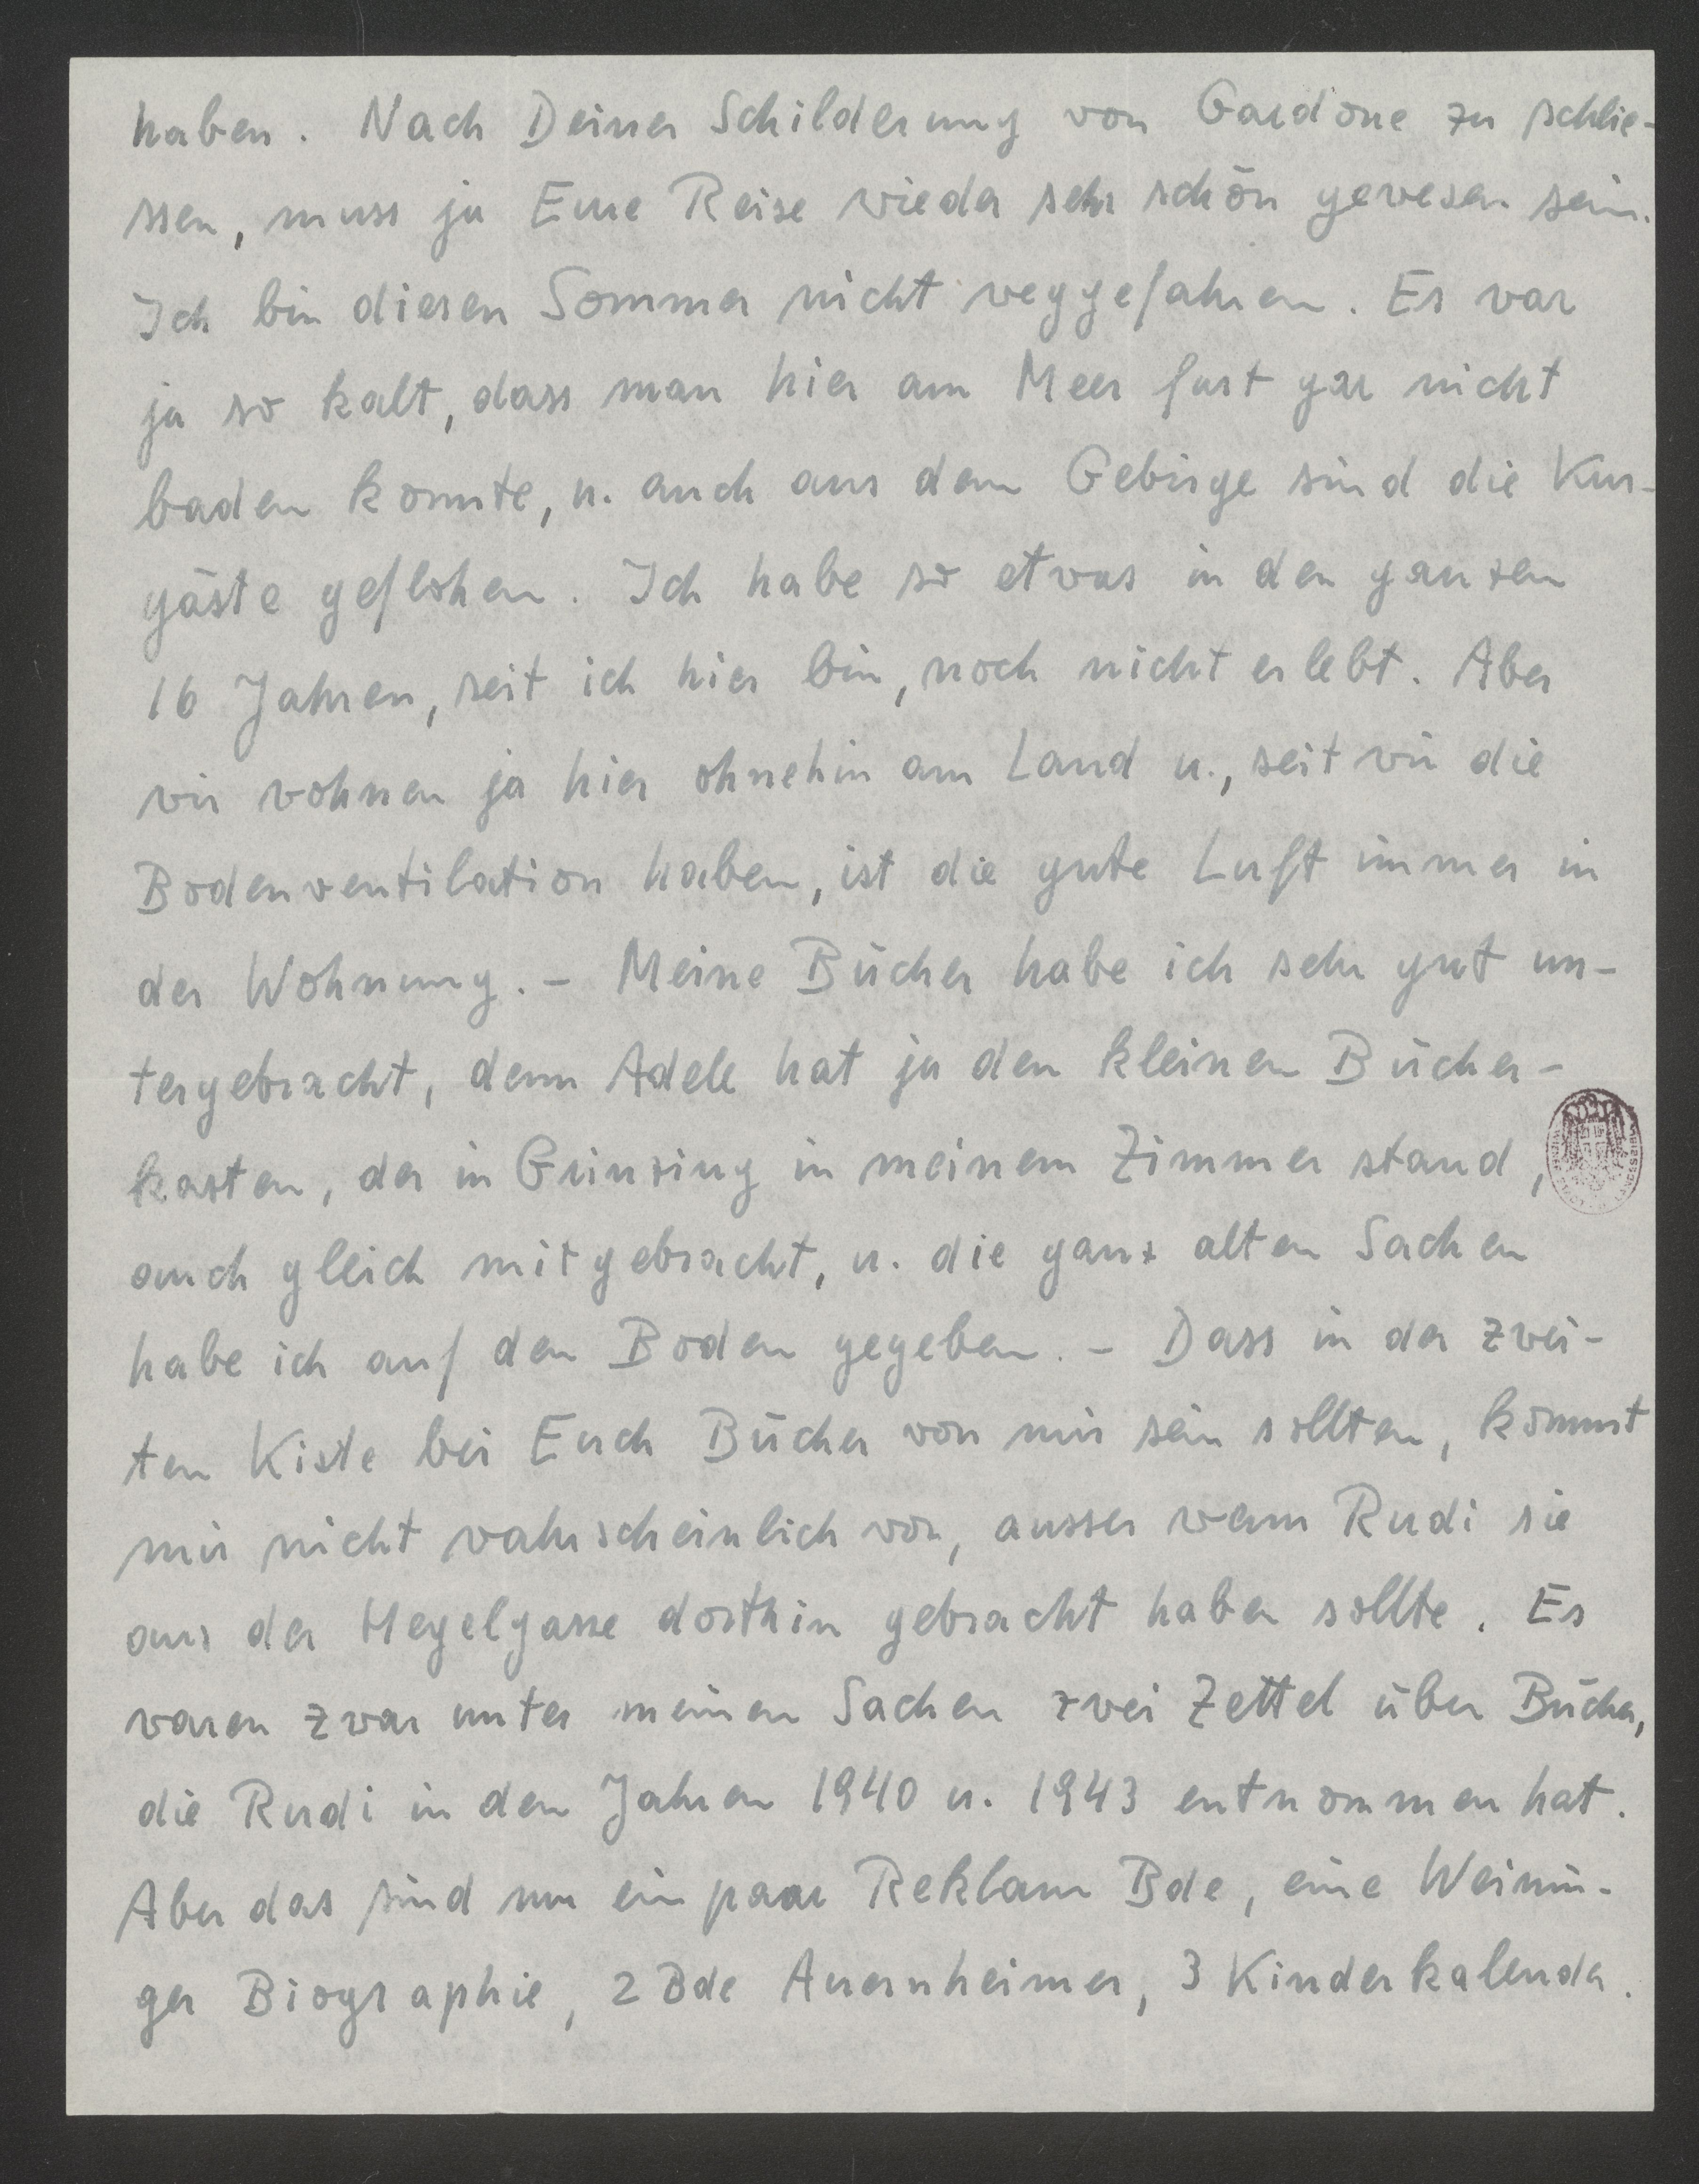 haben. Nach Deiner Schilderung von Gardone zu schlie-
ssen, muss ja Eure Reise wieder sehr schön gewesen sein.
Ich bin diesen Sommer nicht weggefahren. Es war
ja so kalt, dass man hier am Meer fast gar nicht
baden konnte, u. auch aus dem Gebirge sind die Kur-
gäste geflohen. Ich habe so etwas in den ganzen
16 Jahren, seit ich hier bin, noch nicht erlebt. Aber
wir wohnen ja hier ohnehin am Land u., seit wir die
Bodenventilation haben, ist die gute Luft immer in
der Wohnung. – Meine Bücher habe ich sehr gut un-
tergebracht, denn Adele hat ja den kleinen Bücher-
kasten, der in Grinzing in meinem Zimmer stand,
auch gleich mitgebracht, u. die ganz alten Sachen
habe ich auf den Boden gegeben. – Dass in der zwei-
ten Kiste bei Euch Bücher von mir sein sollten, kommt
mir nicht wahrscheinlich vor, ausser wenn Rudi sie
aus der Hegelgasse dorthin gebracht haben sollte. Es
waren zwar unter meinen Sachen zwei Zettel über Bücher,
die Rudi in den Jahren 1940 u. 1943 entnommen hat.
Aber das sind nur ein paar Reklam Bde, eine Weinin-
ger Biographie, 2 Bde Auernheimer, 3 Kinderkalender.